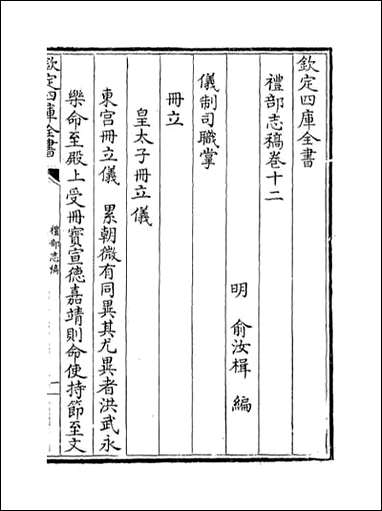 欽定四庫全書
禮部志稿卷十二
明 俞汝楫 編
儀制司職掌
冊立
皇太子冊立儀
東宮冊立儀 累朝微有同異其尤異者洪武永
樂命至殿上受冊寶宣德嘉靖則命使持節至文
欽定四庫全書
禮部志稿